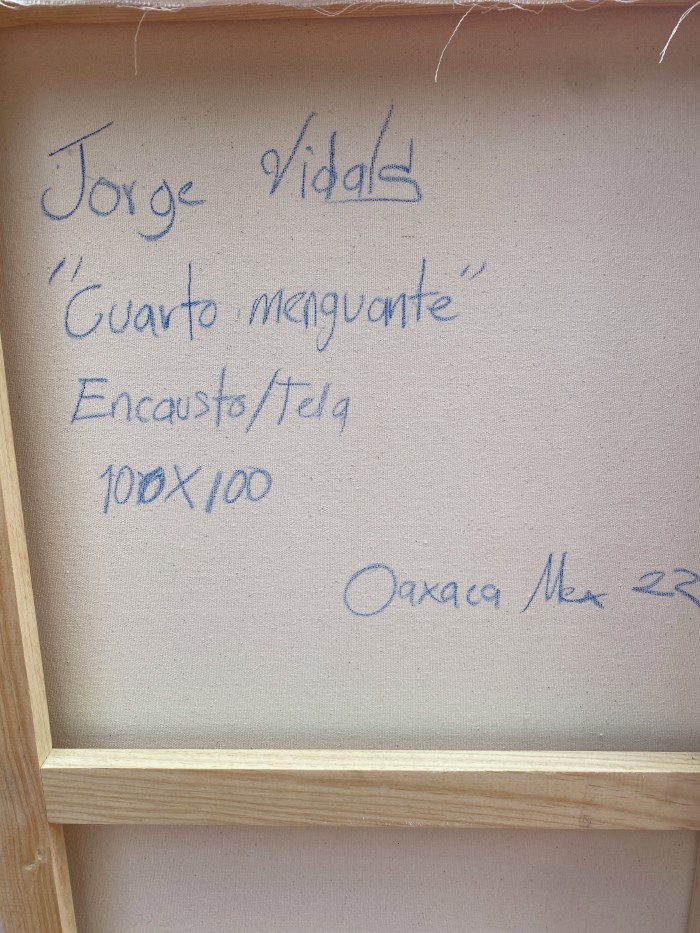 Jorge Vidals
"Cuarto menguante"
Encausto/Tela
100X100
Oaxaca Mex 22